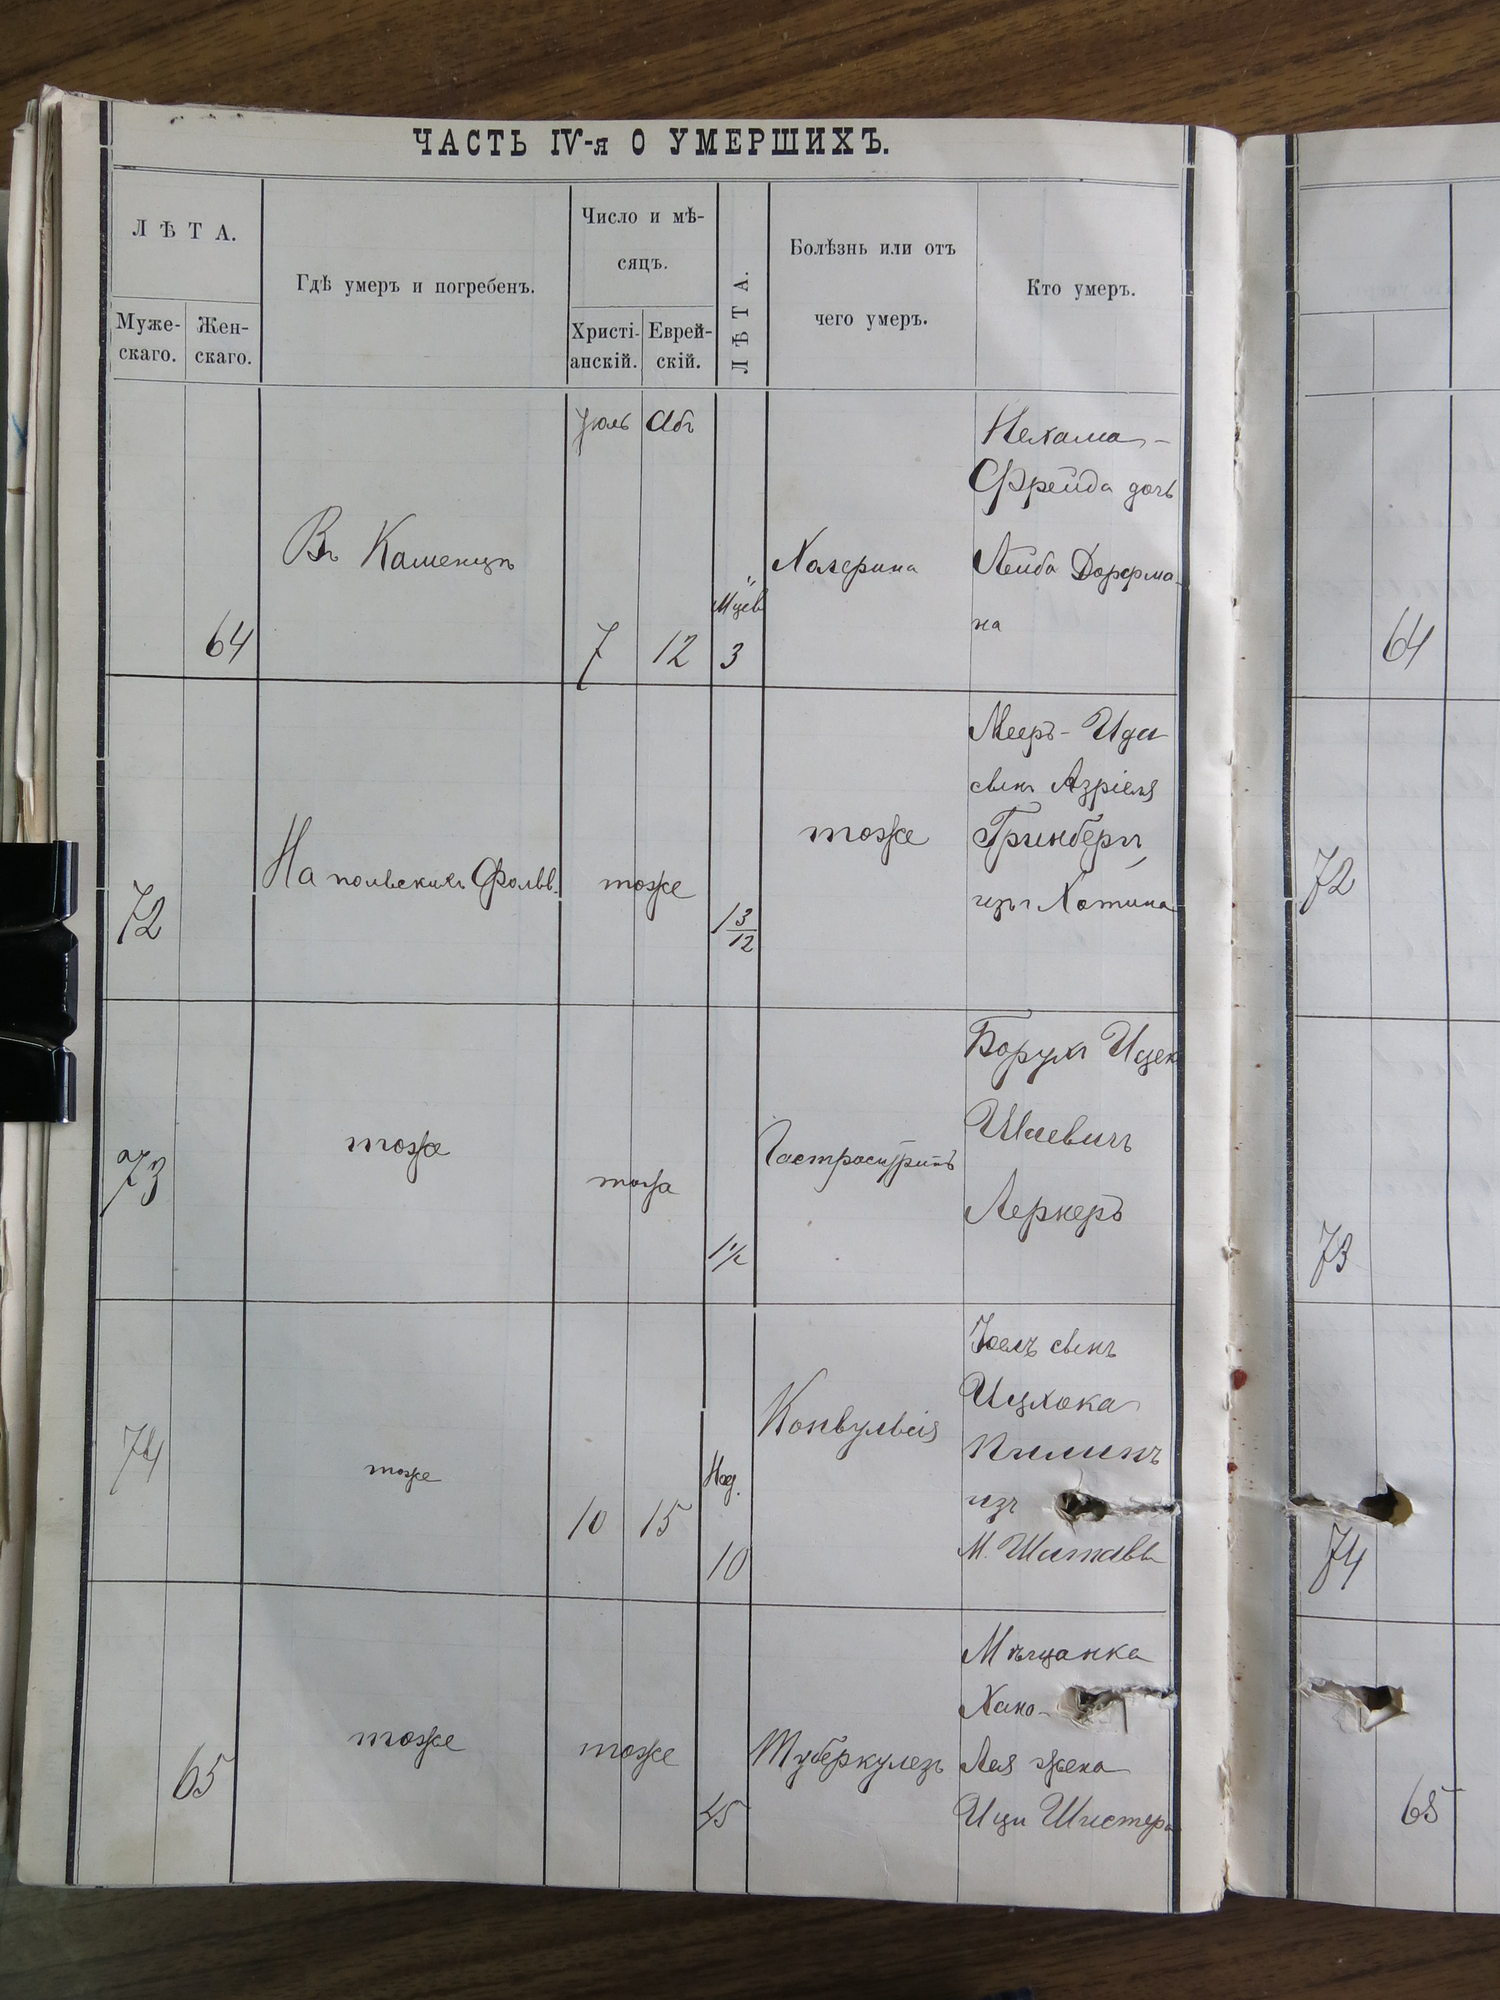 ЧАСТЬ IV-я О УМЕРШИХЪ.
ЛѢТА.
Муже-
скаго.
Жен-
скаго.
Гдѣ умеръ и погребенъ.
Число и мѣ-
сяцъ.
Христі-
анскій.
Еврей-
скій.
ЛѢТА.
Болѣзнь или отъ
чего умеръ.
Кто умеръ.
64
Въ Каменцѣ
Іюль Абъ
7 12
Мцев
3
Холерина
Нехама-
Фрейда дочь
Лейба Дорфма-
на
64
72
На польскихъ Фольв.
тоже
1 3/12
тоже
Мееръ-Ида
сынъ Азріеля
Гринбергъ,
изъ Хотина
72
73
тоже
тоже
1 1/2
Борухъ Ицек
Шаевичъ
Лернеръ
73
74
тоже
10 15
Нед.
10
Конвульсія
Іоелъ сынъ
Ицхока
изъ
М. Шатавы
74
65
тоже
тоже
45
Туберкулезъ
Мѣщанка
Хана-
Лея жена
Ици Шистера
65